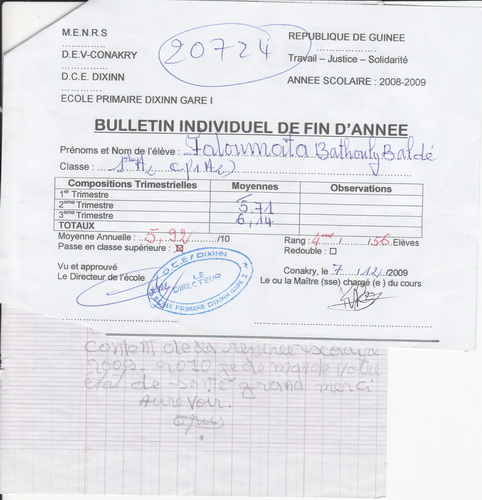 M.E.N.R.S
D.E.V-CONAKRY
D.C.E. DIXINN
ECOLE PRIMAIRE DIXINN GARE I
20724
REPUBLIQUE DE GUINEE
Travail – Justice – Solidarité
ANNEE SCOLAIRE : 2008-2009
BULLETIN INDIVIDUEL DE FIN D'ANNEE
Prénoms et Nom de l'élève : Fatoumata Bathouly Baldé
Classe :
Compositions Trimestrielles Moyennes Observations
1er Trimestre
2ème Trimestre 5.71
3ème Trimestre 6,14
TOTAUX
Moyenne Annuelle : 5,92 /10 Rang : 4ème / 56 Elèves
Passe en classe supérieure : Redouble :
Vu et approuvé
Le Directeur de l'école
D.C.E/DIXINN
LE DIRECTEUR
ECOLE PRIMAIRE DIXINN GARE
Conakry, le 7 /12/2009
Le ou la Maître (sse) chargé (e) du cours
Content de sa rentrée scolaire
2009. 2010 je demande votre
état de santé grand merci
Aurevoir.